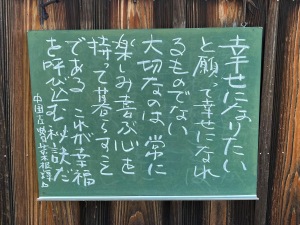 幸せになりたい
と願って幸せになれ
るものでない
大切なのは、常に
楽しみ喜ぶ心を
持って暮らすこと
である これが幸福
を呼び込む秘訣だ
中国古賢 菜根譚